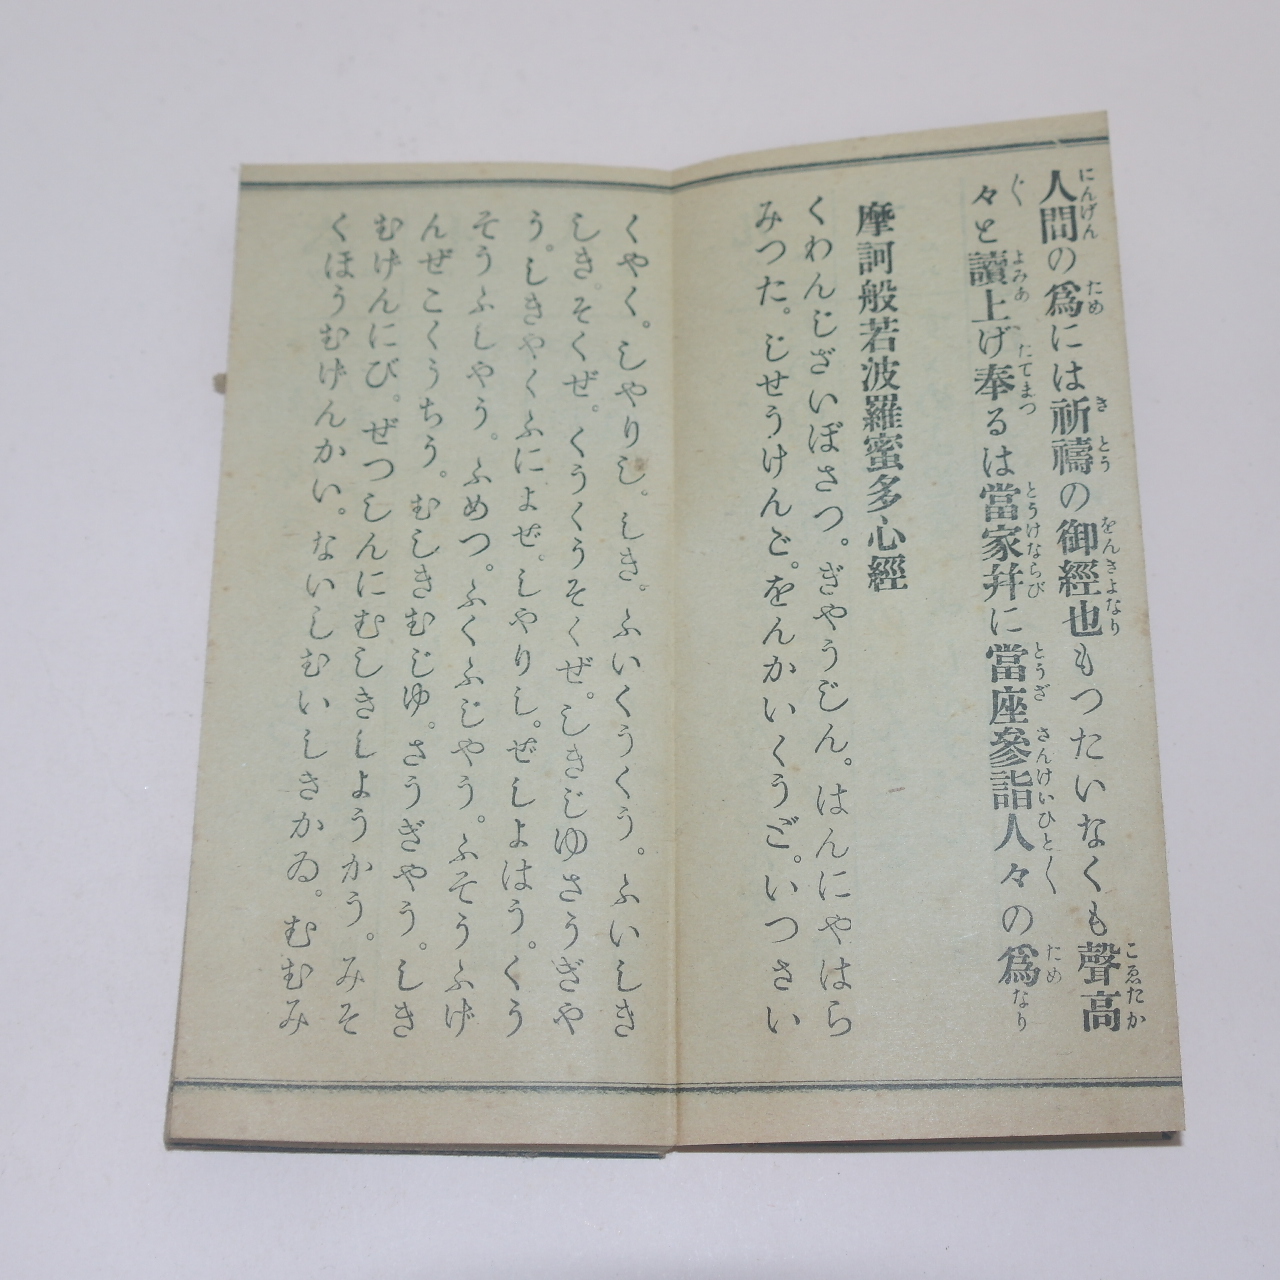 人間の爲には祈禱の御經也もつたいなくも聲高
々と讀上げ奉るは當家幷に當座參詣人々の爲
摩訶般若波羅蜜多心經
くわんじざいぼさつ。ぎやうじん。はんにやはら
みつた。じせうけんご。をんかいくうご。いつさい
くやく。しやりし。しき。ふいくうくう。ふいしき
しき。そくぜ。くうくうそくぜ。しきじゆさうぎや
う。しきやくふによぜ。しやりし。ぜしよはう。くう
そうふしやう。ふめつ。ふくふじやう。ふそうふげ
んぜこくうちう。むしきむじゆ。さうぎやう。しき
むげんにび。ぜつしんにむしきしようかう。みそ
くほうむげんかい。ないしむいしきかゐ。むむみ